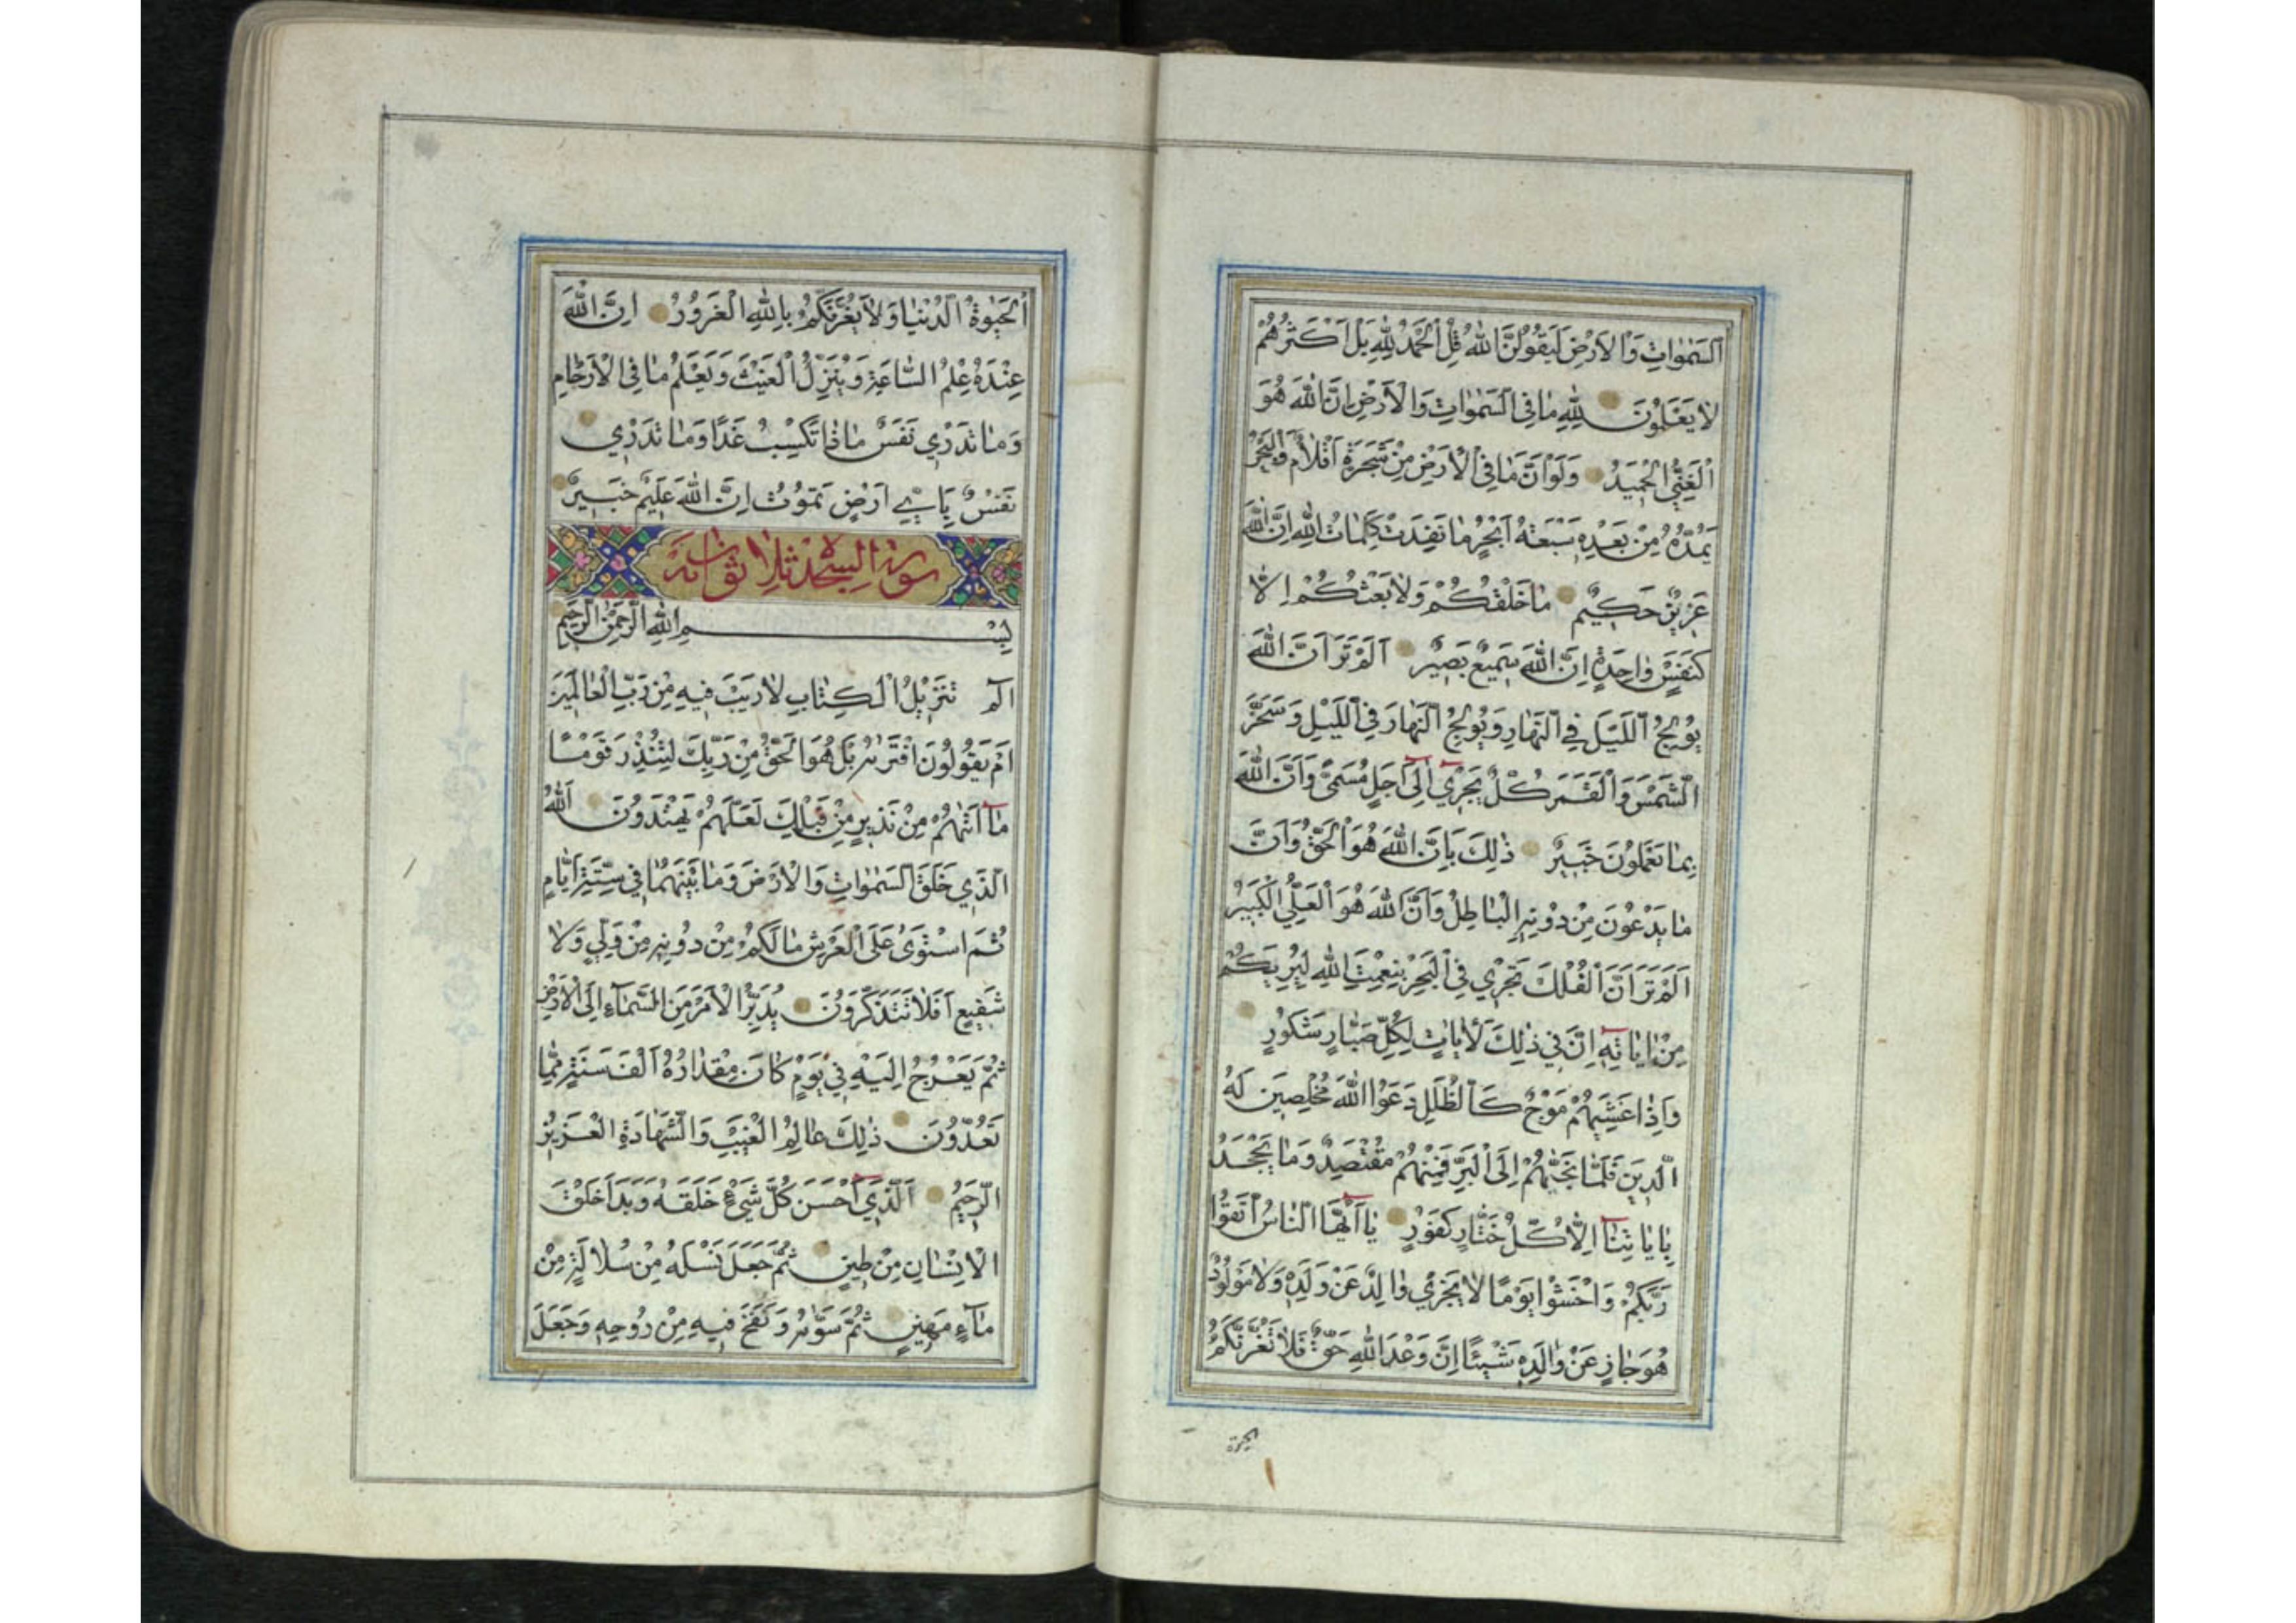 السَّمٰوَاتِ وَالْاَرْضَ لَيَقُولُنَّ اللهُ قُلِ الْحَمْدُ لِلّٰهِ بَلْ اَكْثَرُهُمْ
لَا يَعْلَمُونَ لِلّٰهِ مَا فِى السَّمٰوَاتِ وَالْاَرْضِ اِنَّ اللهَ هُوَ
الْغَنِيُّ الْحَمِيدُ وَلَوْ اَنَّ مَا فِى الْاَرْضِ مِنْ شَجَرَةٍ اَقْلَامٌ وَالْبَحْرُ
يَمُدُّهُ مِنْ بَعْدِهِ سَبْعَةُ اَبْحُرٍ مَا نَفِدَتْ كَلِمَاتُ اللهِ اِنَّ اللهَ
عَزِيزٌ حَكِيمٌ مَا خَلْقُكُمْ وَلَا بَعْثُكُمْ اِلَّا
كَنَفْسٍ وَاحِدَةٍ اِنَّ اللهَ سَمِيعٌ بَصِيرٌ اَلَمْ تَرَ اَنَّ اللهَ
يُولِجُ اللَّيْلَ فِي النَّهَارِ وَيُولِجُ النَّهَارَ فِي اللَّيْلِ وَسَخَّرَ
الشَّمْسَ وَالْقَمَرَ كُلٌّ يَجْرِي اِلٰى اَجَلٍ مُسَمًّى وَاَنَّ اللهَ
بِمَا تَعْمَلُونَ خَبِيرٌ ذٰلِكَ بِاَنَّ اللهَ هُوَ الْحَقُّ وَاَنَّ
مَا يَدْعُونَ مِنْ دُونِهِ الْبَاطِلُ وَاَنَّ اللهَ هُوَ الْعَلِيُّ الْكَبِيرُ
اَلَمْ تَرَ اَنَّ الْفُلْكَ تَجْرِي فِي الْبَحْرِ بِنِعْمَتِ اللهِ لِيُرِيَكُمْ
مِنْ اٰيَاتِهِ اِنَّ فِي ذٰلِكَ لَاٰيَاتٍ لِكُلِّ صَبَّارٍ شَكُورٍ
وَاِذَا غَشِيَهُمْ مَوْجٌ كَالظُّلَلِ دَعَوُا اللهَ مُخْلِصِينَ لَهُ
الدِّينَ فَلَمَّا نَجّٰيهُمْ اِلَى الْبَرِّ فَمِنْهُمْ مُقْتَصِدٌ وَمَا يَجْحَدُ
بِاٰيَاتِنَا اِلَّا كُلُّ خَتَّارٍ كَفُورٍ يَا اَيُّهَا النَّاسُ اتَّقُوا
رَبَّكُمْ وَاخْشَوْا يَوْمًا لَا يَجْزِي وَالِدٌ عَنْ وَلَدِهِ وَلَا مَوْلُودٌ
هُوَ جَازٍ عَنْ وَالِدِهِ شَيْئًا اِنَّ وَعْدَ اللهِ حَقٌّ فَلَا تَغُرَّنَّكُمُ
الحيوة
الْحَيٰوةُ الدُّنْيَا وَلَا يَغُرَّنَّكُمْ بِاللهِ الْغَرُورُ اِنَّ اللهَ
عِنْدَهُ عِلْمُ السَّاعَةِ وَيُنَزِّلُ الْغَيْثَ وَيَعْلَمُ مَا فِى الْاَرْحَامِ
وَمَا تَدْرِي نَفْسٌ مَاذَا تَكْسِبُ غَدًا وَمَا تَدْرِي
نَفْسٌ بِاَيِّ اَرْضٍ تَمُوتُ اِنَّ اللهَ عَلِيمٌ خَبِيرٌ
سورة السجدة ثلاثون آية
بِسْمِ اللهِ الرَّحْمٰنِ الرَّحِيمِ
الٓمٓ تَنْزِيلُ الْكِتَابِ لَا رَيْبَ فِيهِ مِنْ رَبِّ الْعَالَمِينَ
اَمْ يَقُولُونَ افْتَرٰيهُ بَلْ هُوَ الْحَقُّ مِنْ رَبِّكَ لِتُنْذِرَ قَوْمًا
مَا اَتٰيهُمْ مِنْ نَذِيرٍ مِنْ قَبْلِكَ لَعَلَّهُمْ يَهْتَدُونَ اَللهُ
الَّذِي خَلَقَ السَّمٰوَاتِ وَالْاَرْضَ وَمَا بَيْنَهُمَا فِي سِتَّةِ اَيَّامٍ
ثُمَّ اسْتَوٰى عَلَى الْعَرْشِ مَا لَكُمْ مِنْ دُونِهِ مِنْ وَلِيٍّ وَلَا
شَفِيعٍ اَفَلَا تَتَذَكَّرُونَ يُدَبِّرُ الْاَمْرَ مِنَ السَّمَاءِ اِلَى الْاَرْضِ
ثُمَّ يَعْرُجُ اِلَيْهِ فِي يَوْمٍ كَانَ مِقْدَارُهُ اَلْفَ سَنَةٍ مِمَّا
تَعُدُّونَ ذٰلِكَ عَالِمُ الْغَيْبِ وَالشَّهَادَةِ الْعَزِيزُ
الرَّحِيمُ اَلَّذِي اَحْسَنَ كُلَّ شَيْءٍ خَلَقَهُ وَبَدَاَ خَلْقَ
الْاِنْسَانِ مِنْ طِينٍ ثُمَّ جَعَلَ نَسْلَهُ مِنْ سُلَالَةٍ مِنْ
مَاءٍ مَهِينٍ ثُمَّ سَوّٰيهُ وَنَفَخَ فِيهِ مِنْ رُوحِهِ وَجَعَلَ